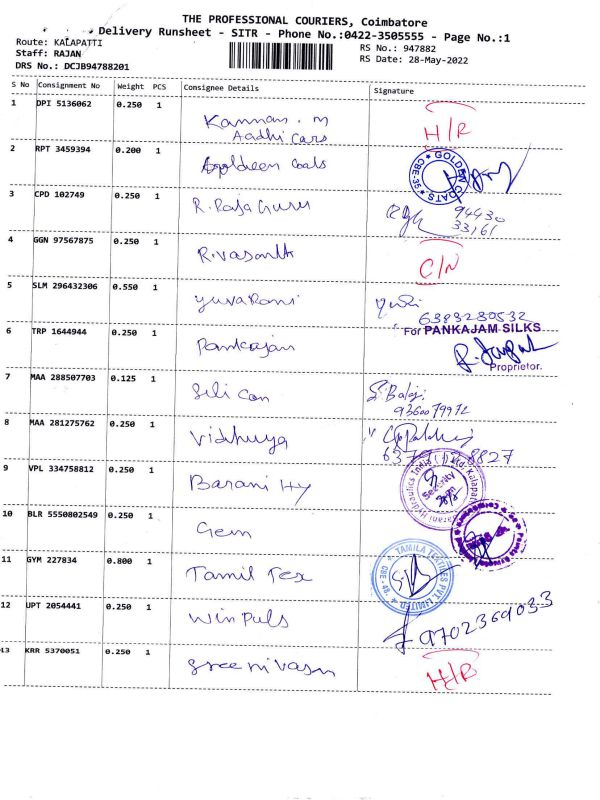 THE PROFESSIONAL COURIERS, Coimbatore
Delivery Runsheet - SITR - Phone No.:0422-3505555 - Page No.:1
Route: KALAPATTI
Staff: RAJAN
DRS No.: DCJB94788201
RS No.: 947882
RS Date: 28-May-2022
S No Consignment No Weight PCS Consignee Details Signature
1 DPI 5136062 0.250 1 Kannan. M
Aadhi Cars H/R
2 RPT 3459394 0.200 1 Goldeen Coats
GOLDEN COATS CBE-35
3 CPD 102749 0.250 1 R. Raja Guru 94430
33161
4 GGN 97567875 0.250 1 R.Vasanth C/N
5 SLM 296432306 0.550 1 Yuva Rani
6383280532
6 TRP 1644944 0.250 1 Pankajan
For PANKAJAM SILKS
Proprietor.
7 MAA 288507703 0.125 1 Sili Con S. Balaji
9360079972
8 MAA 281275762 0.250 1 Vidhuya
8827
9 VPL 334758812 0.250 1 Barani Hy
Barani Hydraulics India (P) Ltd. Kalapatti
Security
10 BLR 5550802549 0.250 1 Gem
11 GYM 227834 0.800 1 Tamil Tex
TAMILA TEXTILES PVT. LIMITED CBE-48
12 UPT 2054441 0.250 1 Win Puls
9702369033
13 KRR 5370051 0.250 1 Sreenivasn H/R